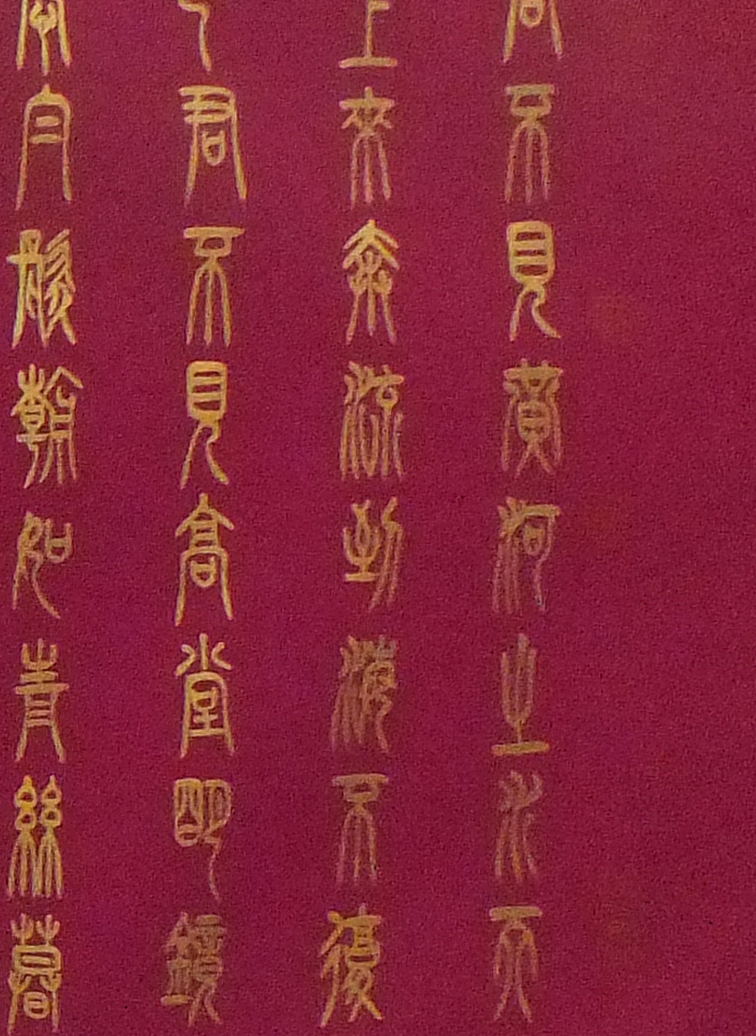 君不見黃河之水天
上來奔流到海不復
君不見高堂明鏡
白髮朝如青絲暮